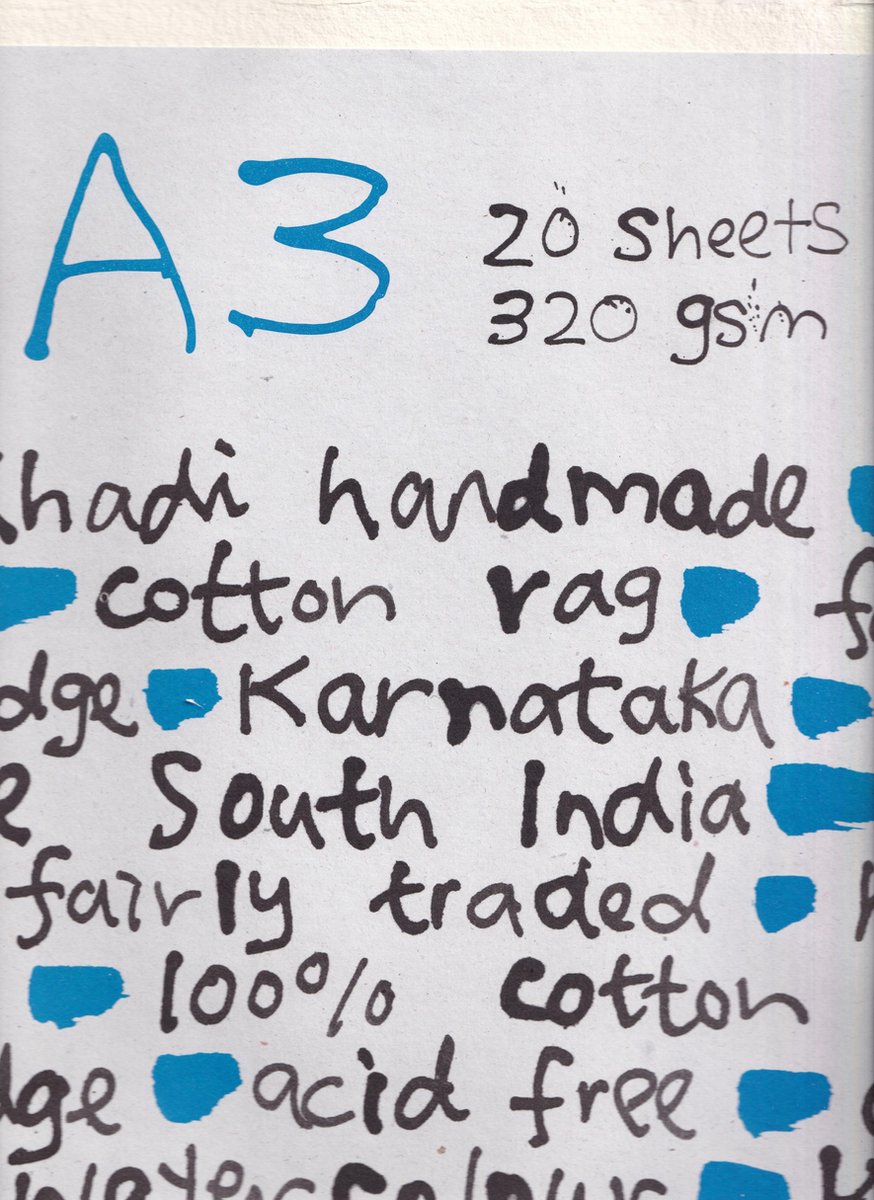 A3
20 sheets
320 gsm
Khadi handmade
cotton rag
dge Karnataka
e South India
fairly traded
100% cotton
dge acid free